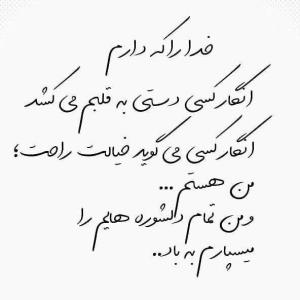 خدا را که دارم
انگار کسی دستی به قلبم می کشد
انگار کسی می گوید خیالت راحت؛
من هستم ...
و من تمام دلشوره هایم را
میسپارم به باد..